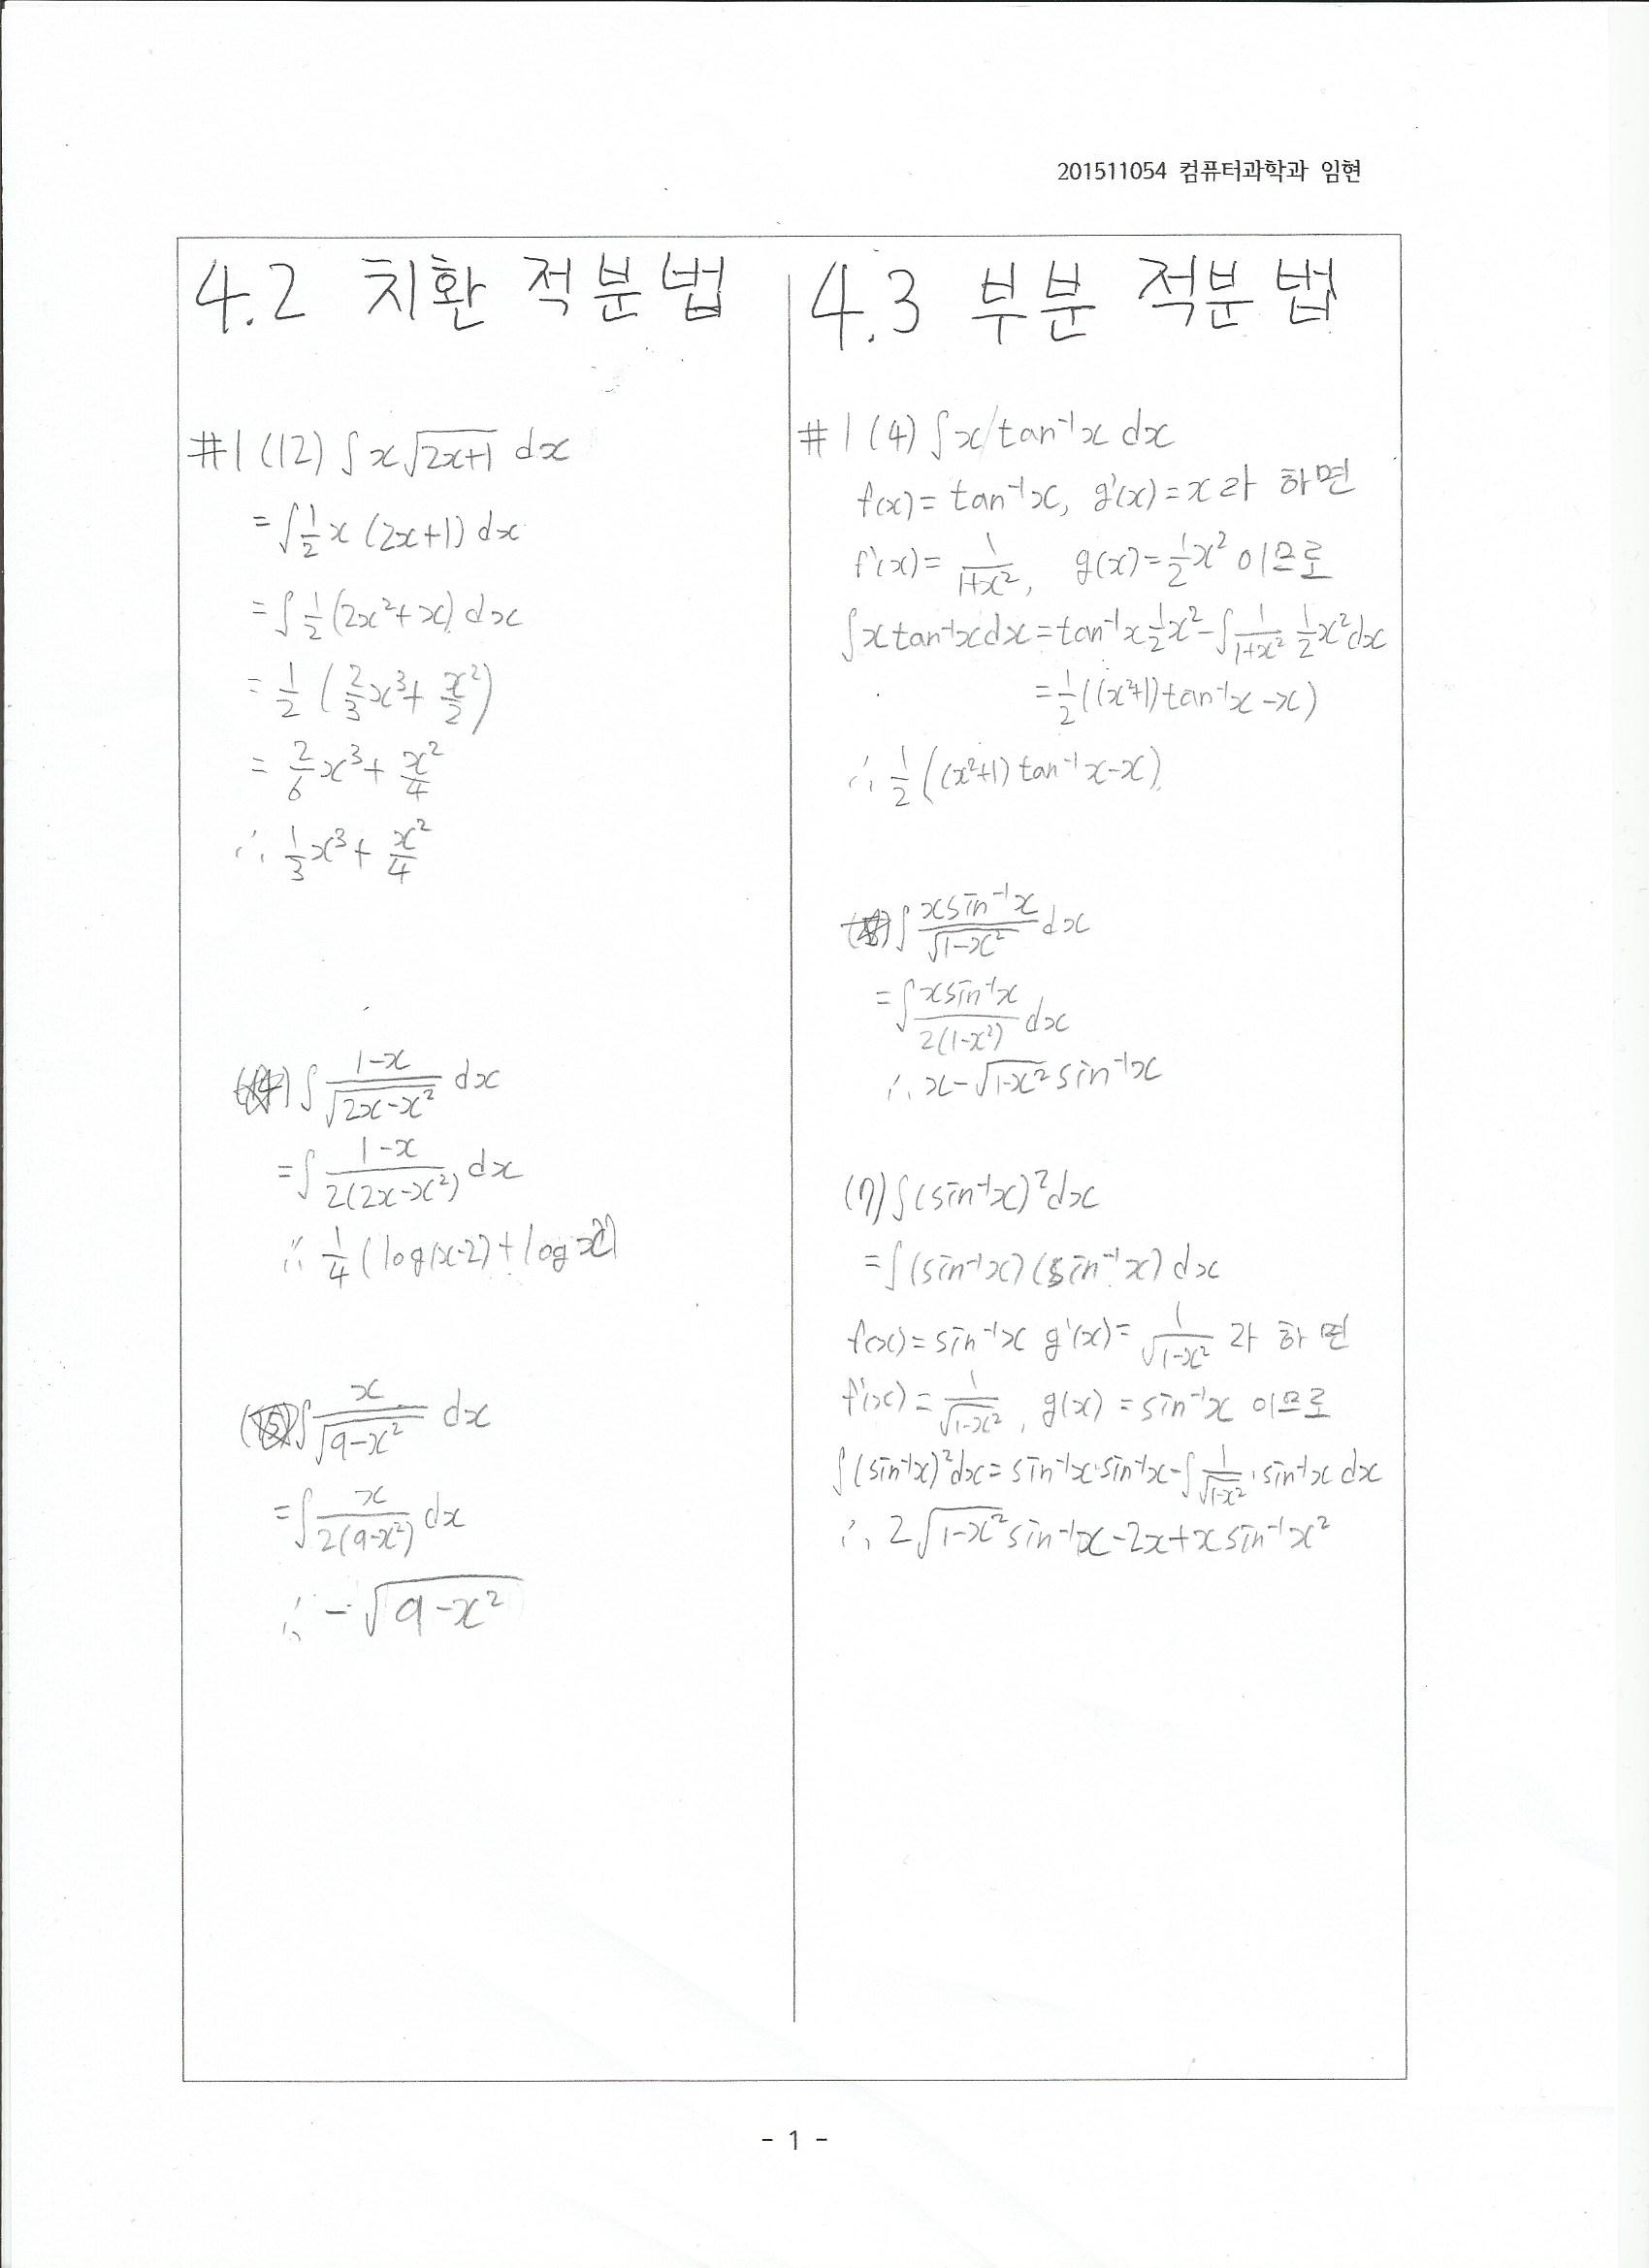 201511054 컴퓨터과학과 임현
4.2 치환 적분법
#1 (12) ∫x√(2x+1) dx
= ∫½x (2x+1) dx
= ∫½(2x²+x) dx
= ½(⅔x³ + x²/2)
= 2/6 x³ + x²/4
∴ ⅓x³ + x²/4
(14) ∫ (1-x)/√(2x-x²) dx
= ∫ (1-x)/2(2x-x²) dx
∴ ¼(log(x-2)+log x)
(15) ∫ x/√(9-x²) dx
= ∫ x/2(9-x²) dx
∴ -√(9-x²)
4.3 부분 적분법
#1 (4) ∫x tan⁻¹x dx
f(x) = tan⁻¹x, g'(x) = x라 하면
f'(x) = 1/(1+x²), g(x) = ½x² 이므로
∫x tan⁻¹x dx = tan⁻¹x ½x² - ∫ 1/(1+x²) ½x² dx
= ½((x²+1) tan⁻¹x - x)
∴ ½((x²+1) tan⁻¹x - x)
∫ x sin⁻¹x/√(1-x²) dx
= ∫ x sin⁻¹x/2(1-x²) dx
∴ x - √(1-x²) sin⁻¹x
(7) ∫(sin⁻¹x)² dx
= ∫(sin⁻¹x)(sin⁻¹x) dx
f(x) = sin⁻¹x g'(x) = 1/√(1-x²) 라 하면
f'(x) = 1/√(1-x²), g(x) = sin⁻¹x 이므로
∫(sin⁻¹x)² dx = sin⁻¹x·sin⁻¹x - ∫ 1/√(1-x²) · sin⁻¹x dx
∴ 2√(1-x²) sin⁻¹x - 2x + x sin⁻¹x²
- 1 -